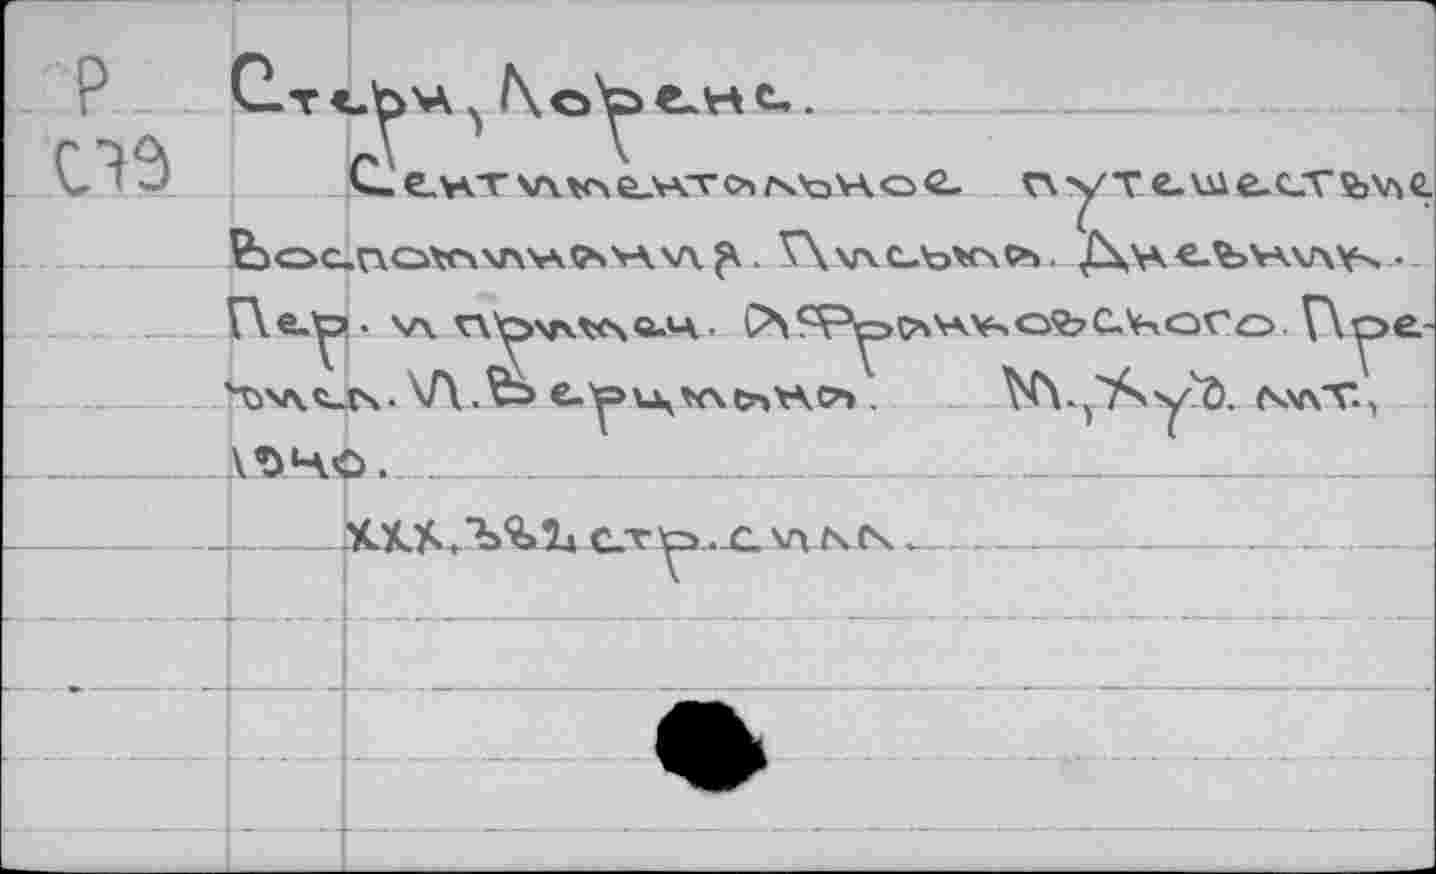 Р
С79
Стерн, Лоренс.
Сентиментальное путешествие
Воспоминания. Письма. Дневник.
Пер. и примеч. А.Франковского. Пре-
дисл. И.Верцмана. М., Худ. лит.,
1940.
XXX,322 стр. с илл.